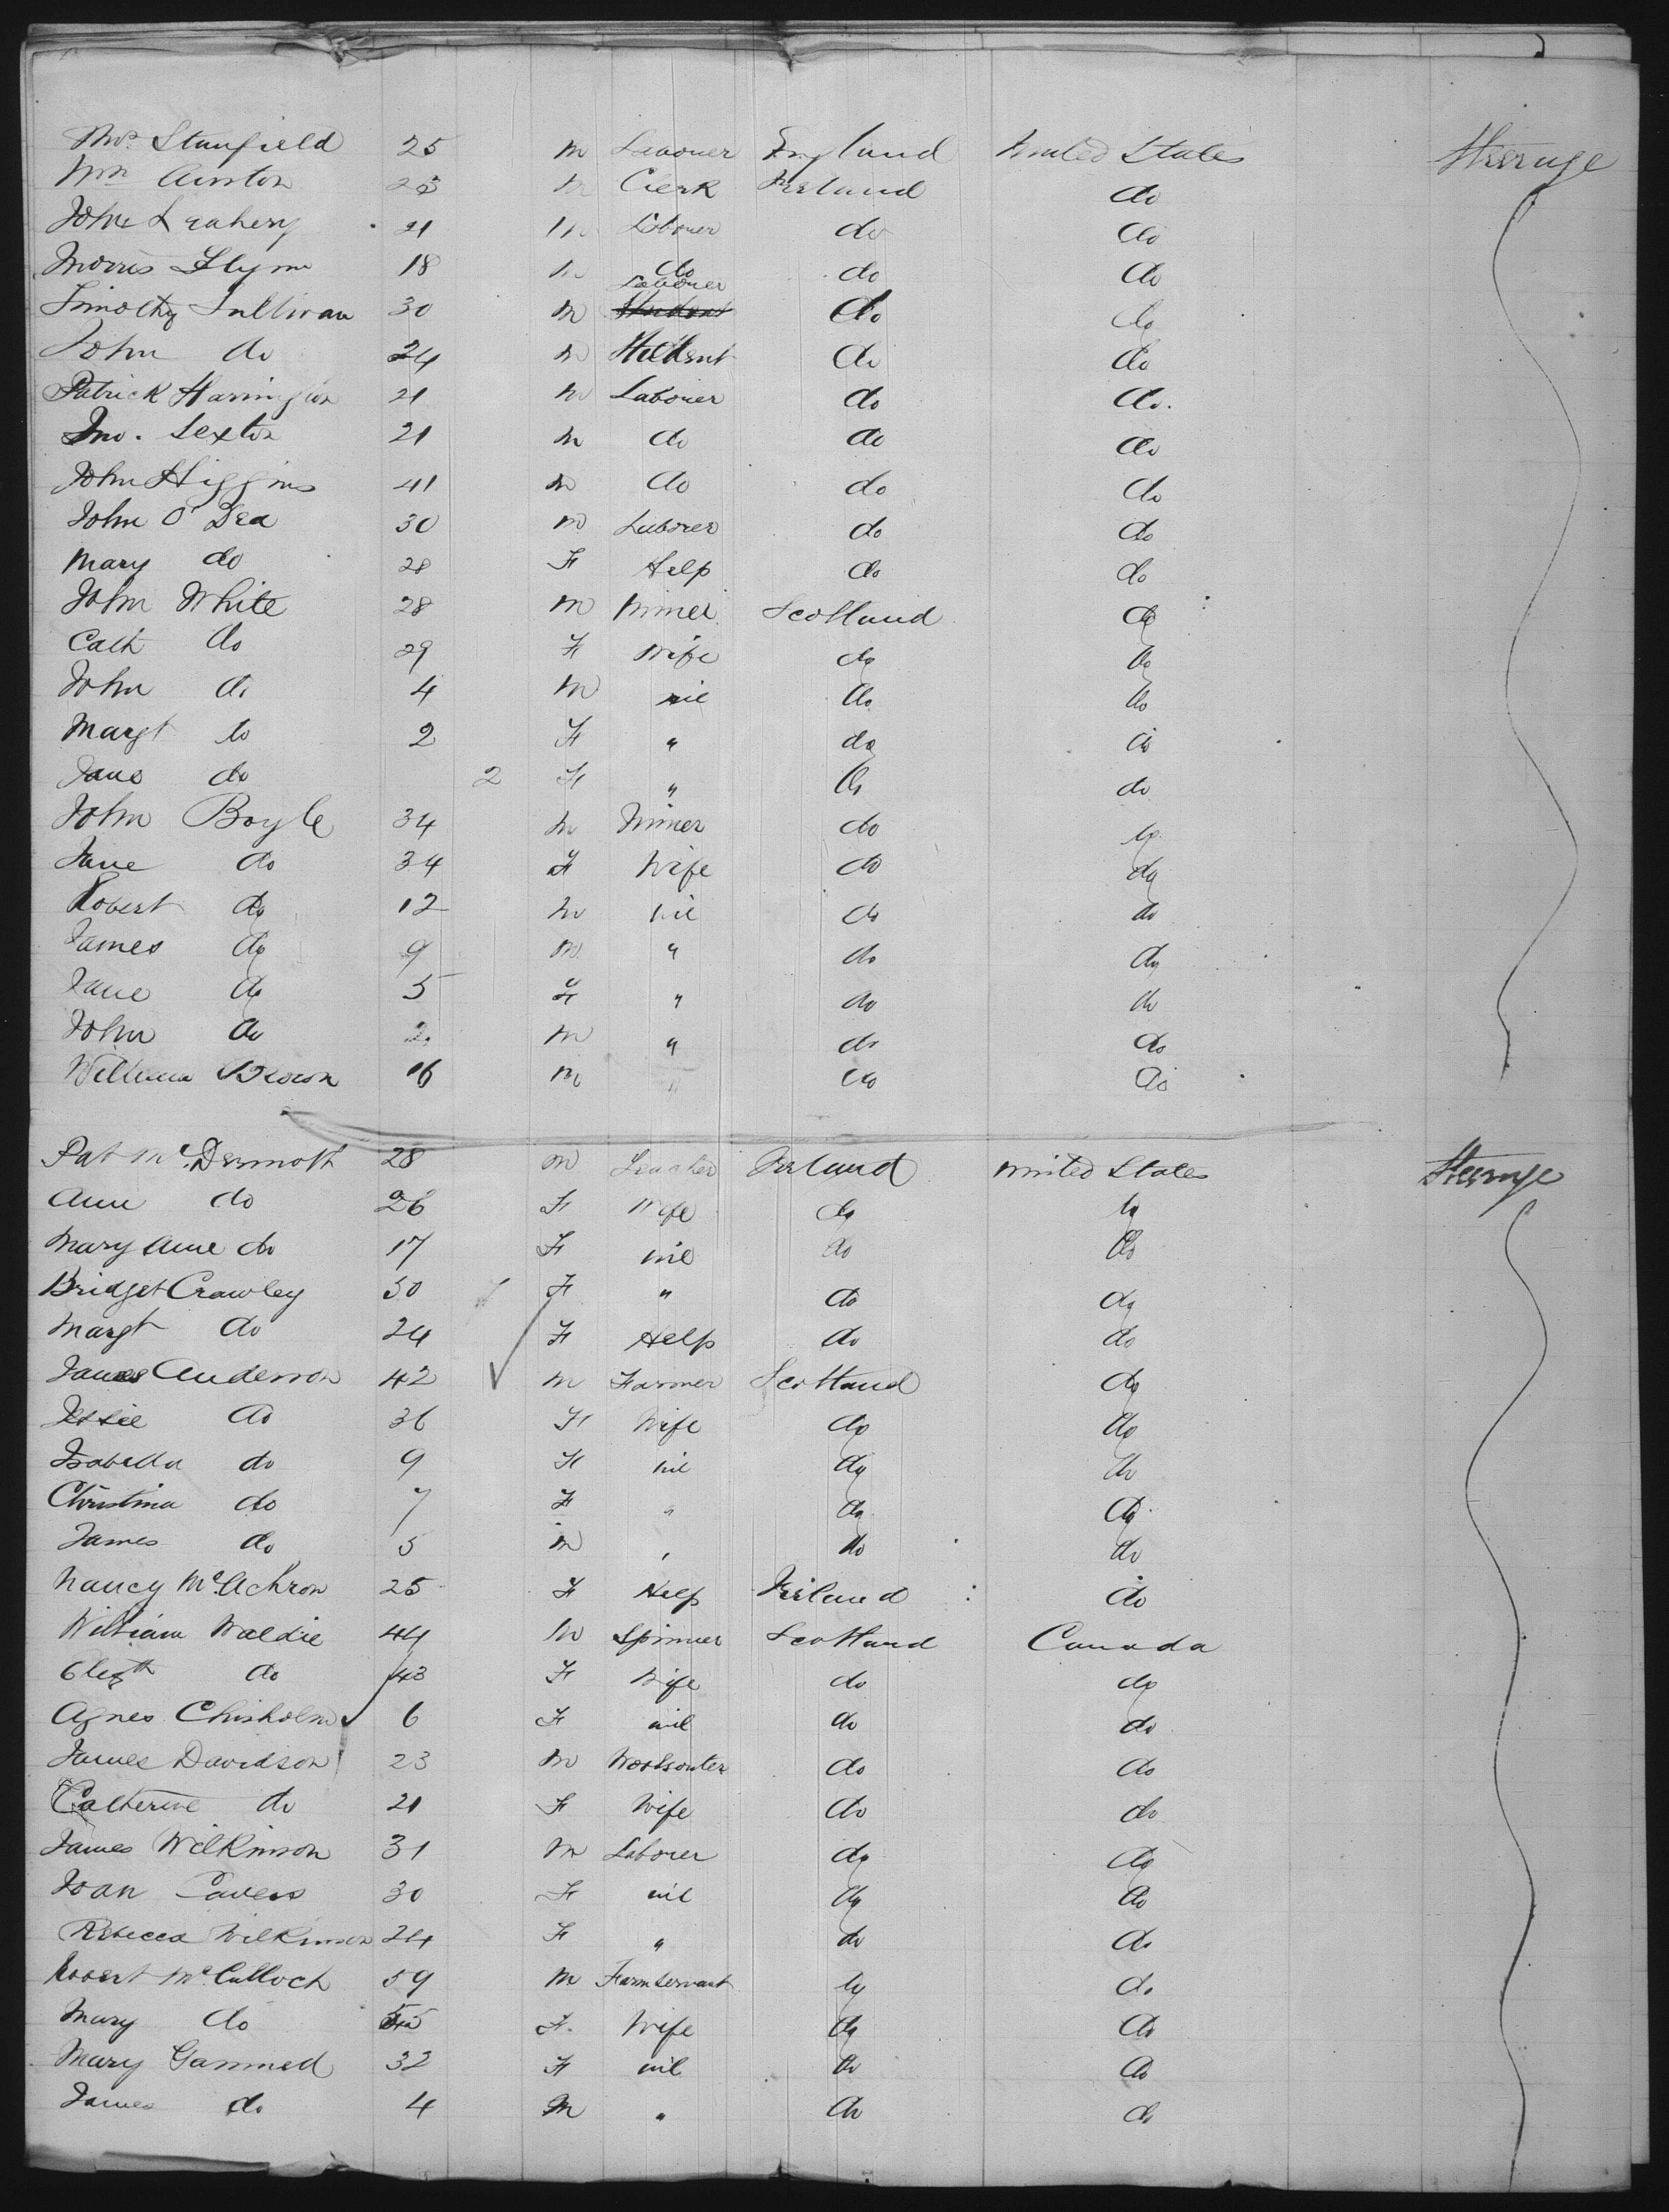 Thos. Stanfield 25 m Laborer England United States Steerage
Wm Ainston 25 m Clerk Ireland do
John Leahery 21 m Laborer do do
Morris Flynn 18 m do do do
Laborer
Timothy Sullivan 30 m Student do do
John do 24 m Student do do
Patrick Harrington 21 m Laborer do do.
Jno. Sexton 21 m do do do
John Higgins 41 m do do do
John O'Dea 30 m Laborer do do
Mary do 28 F Help do do
John White 28 m Miner Scotland do
Cath do 29 F Wife do do
John do 4 m nil do do
Margt do 2 F " do do
Jane do 2 F " do do
John Boyle 34 m Miner do do
Jane do 34 F Wife do do
Robert do 12 m nil do do
James do 9 m " do do
Jane do 5 F " do do
John do 2 m " do do
William Brown 16 m " do do
Pat McDermott 28 m Ireland United States Steerage
Ann do 26 F Wife do do
Mary Ann do 17 F nil do do
Bridget Crawley 50 F " do do
Margt do 24 F Help do do
James Anderson 42 m Farmer Scotland do
Jessie do 36 F Wife do do
Isabella do 9 F nil do do
Christina do 7 F " do do
James do 5 m " do do
Nancy McAchron 25 F Help Ireland do
William Waldie 44 m Spinner Scotland Canada
Elizth do 43 F Wife do do
Agnes Chisholm 6 F nil do do
James Davidson 23 m do do
Catherine do 21 F Wife do do
James Wilkinson 31 m Laborer do do
Joan Cavers 30 F nil do do
Rebecca Wilkinson 24 F " do do
Robert McCulloch 59 m Farm Servant do do
Mary do 55 F. Wife do do
Mary Gammed 32 F nil do do
James do 4 m " do do